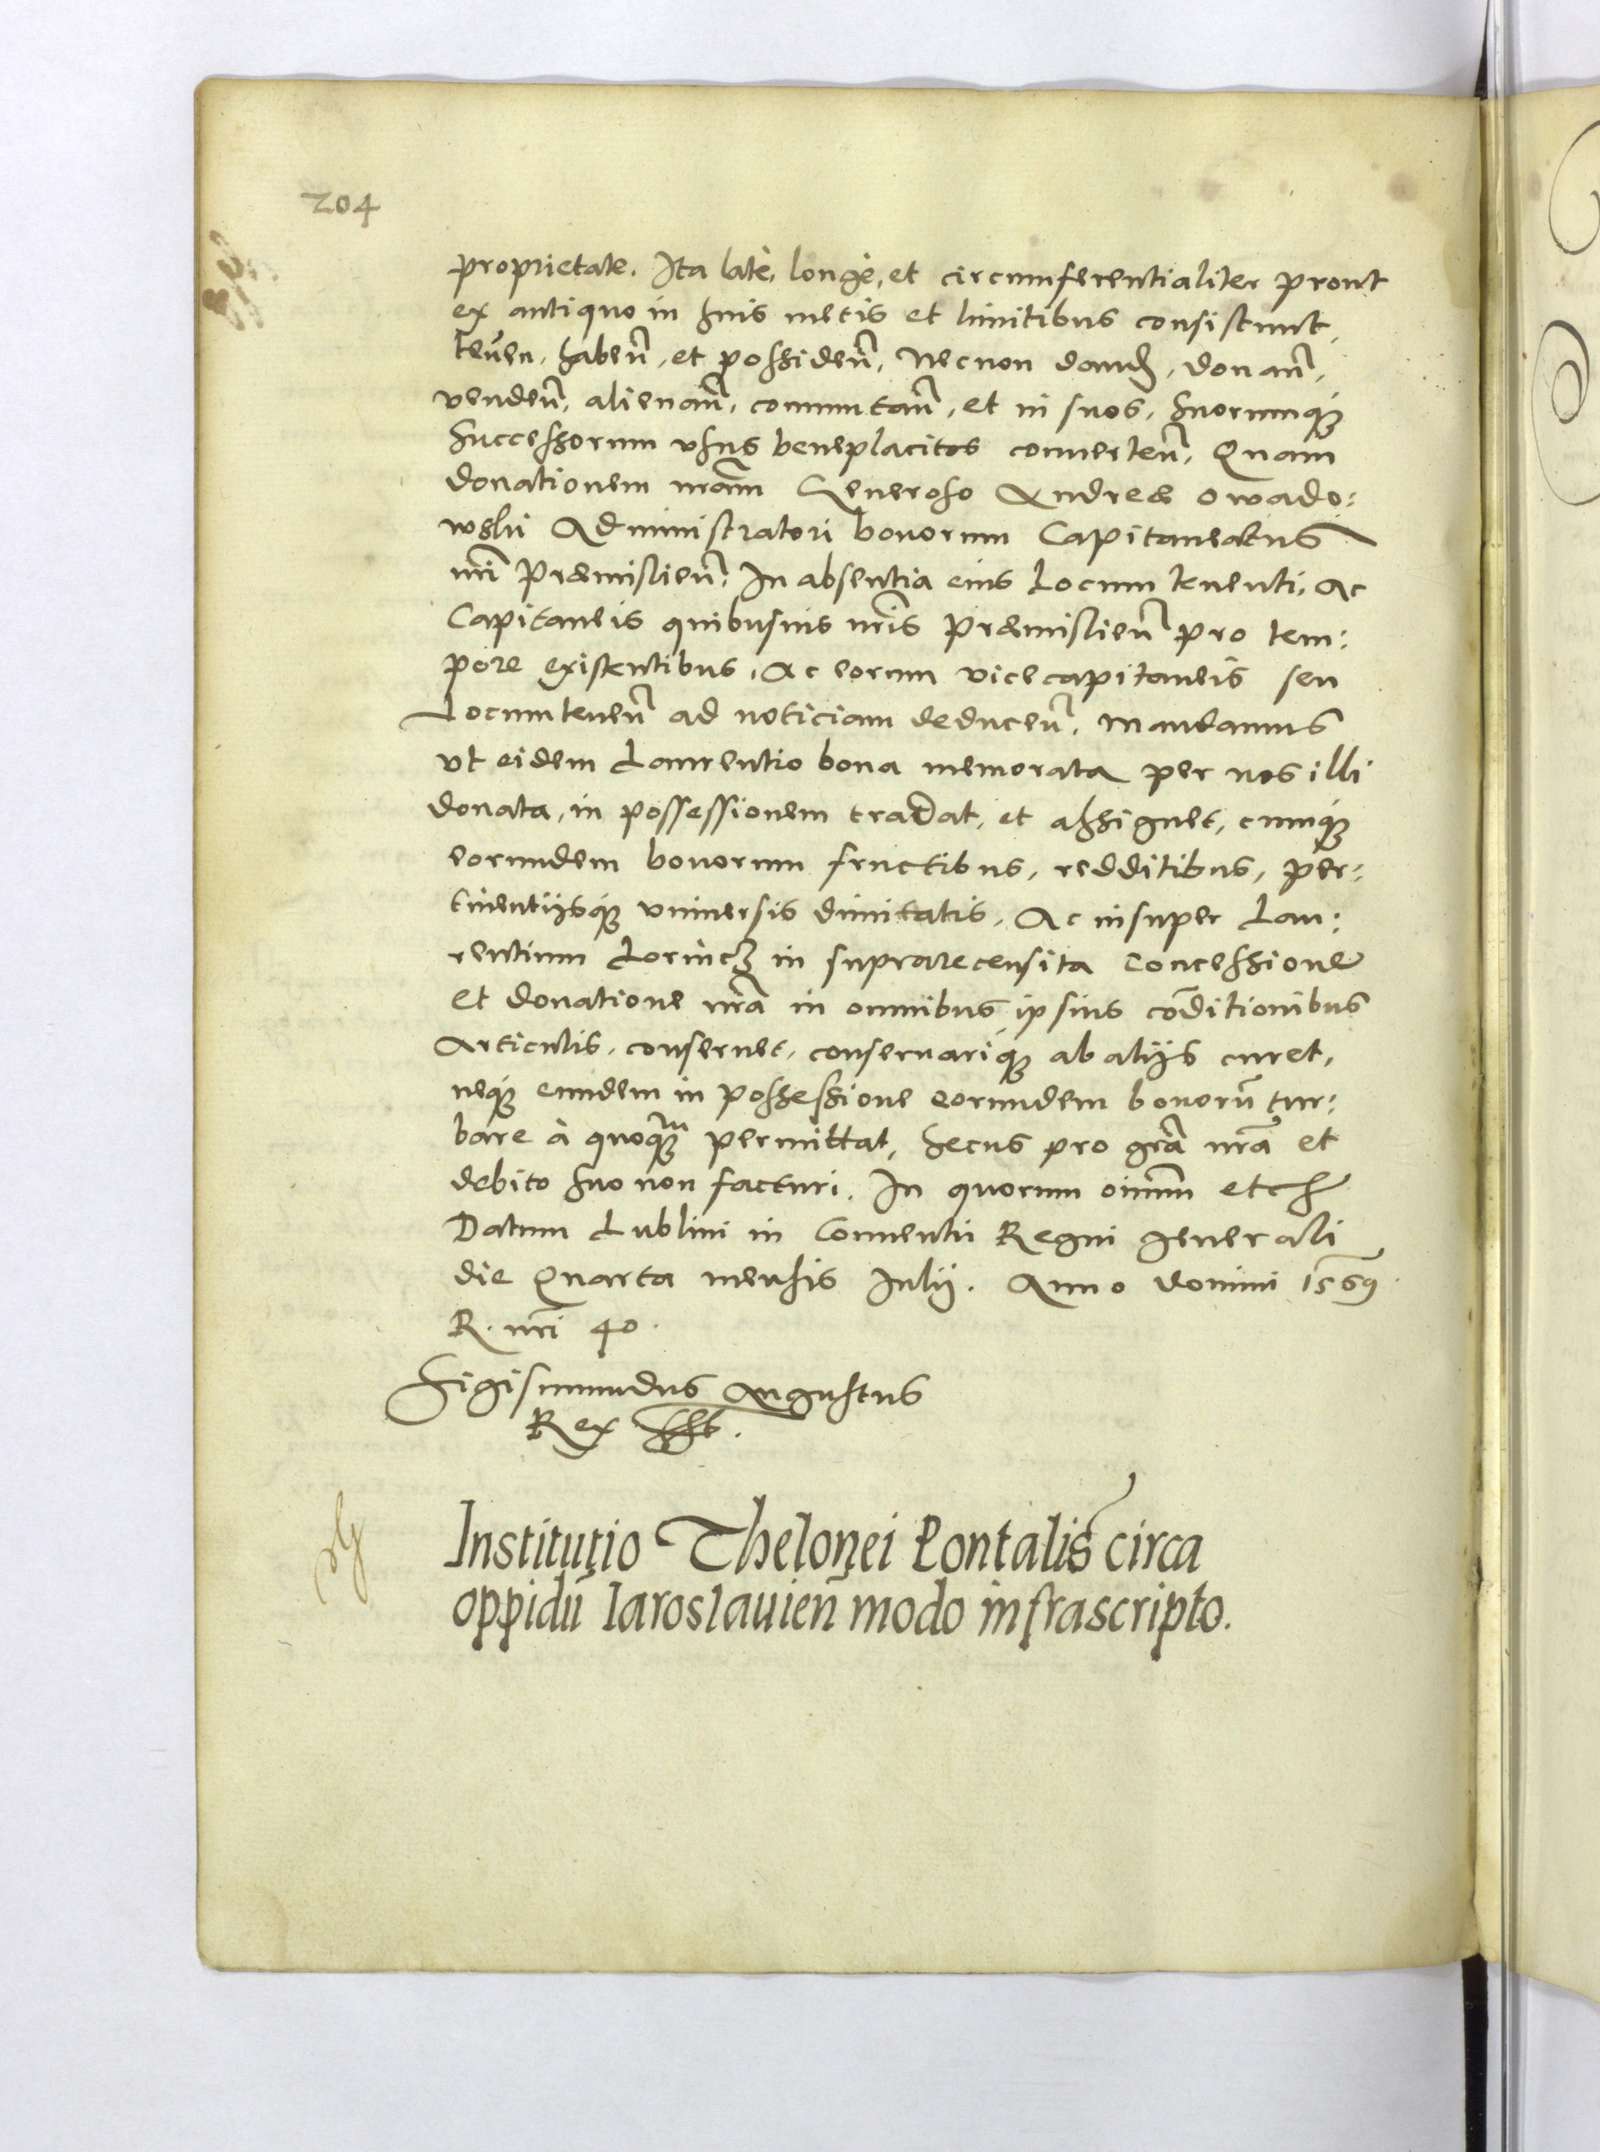 204
proprietate. Ita latè, longè, et circumferentialiter prout
ex antiquo in suis metis et limitibus consistunt,
teneñ. habeñ. et possideñ. Necnon dand̃, donañ,
vendeñ, alienañ, commutañ, et in suos, suorumq̃
successorum vsus beneplacitos conuerteñ. Quam
donationem nram̃ Generoso Andreæ Owado:
wski Administratori bonorum Capitaneatus
nri Præmislieñ. In absentia eius Locum tenenti, Ac
Capitaneis quibusuis nris Præmislieñ pro tem:
pore existentibus, Ac eorum vicecapitaneis seu
Locumteneñ ad noticiam deduceñ, mandamus
vt eidem Laurentio bona memorata per nos illi
donata, in possessionem tradat, et assignet, cumq̃
eorundem bonorum fructibus, redditibus, per:
tinentijsq̃ vniuersis dimitatis. Ac insuper Lau:
rentium Lorincz in suprarecensita Concessione
et donatione nrã in omnibus ipsius cõditionibus
Articulis, conseruet, conseruariq̃ ab alijs curet,
neq̃ eundem in possessione eorundem bonorũ tur:
bare à quoq̃m permittat, secus pro grã nrã et
debito suo non facturi. In quorum oium̃ etc
Datum Lublini in Conuentu Regni generali
die Quarta mensis Iulij. Anno domini 1569
R. nri 40.
Sigismundus Augustus
Rex sst.
Institutio Thelonei Pontalis circa
oppidũ Iaroslauieñ modo infrascripto.